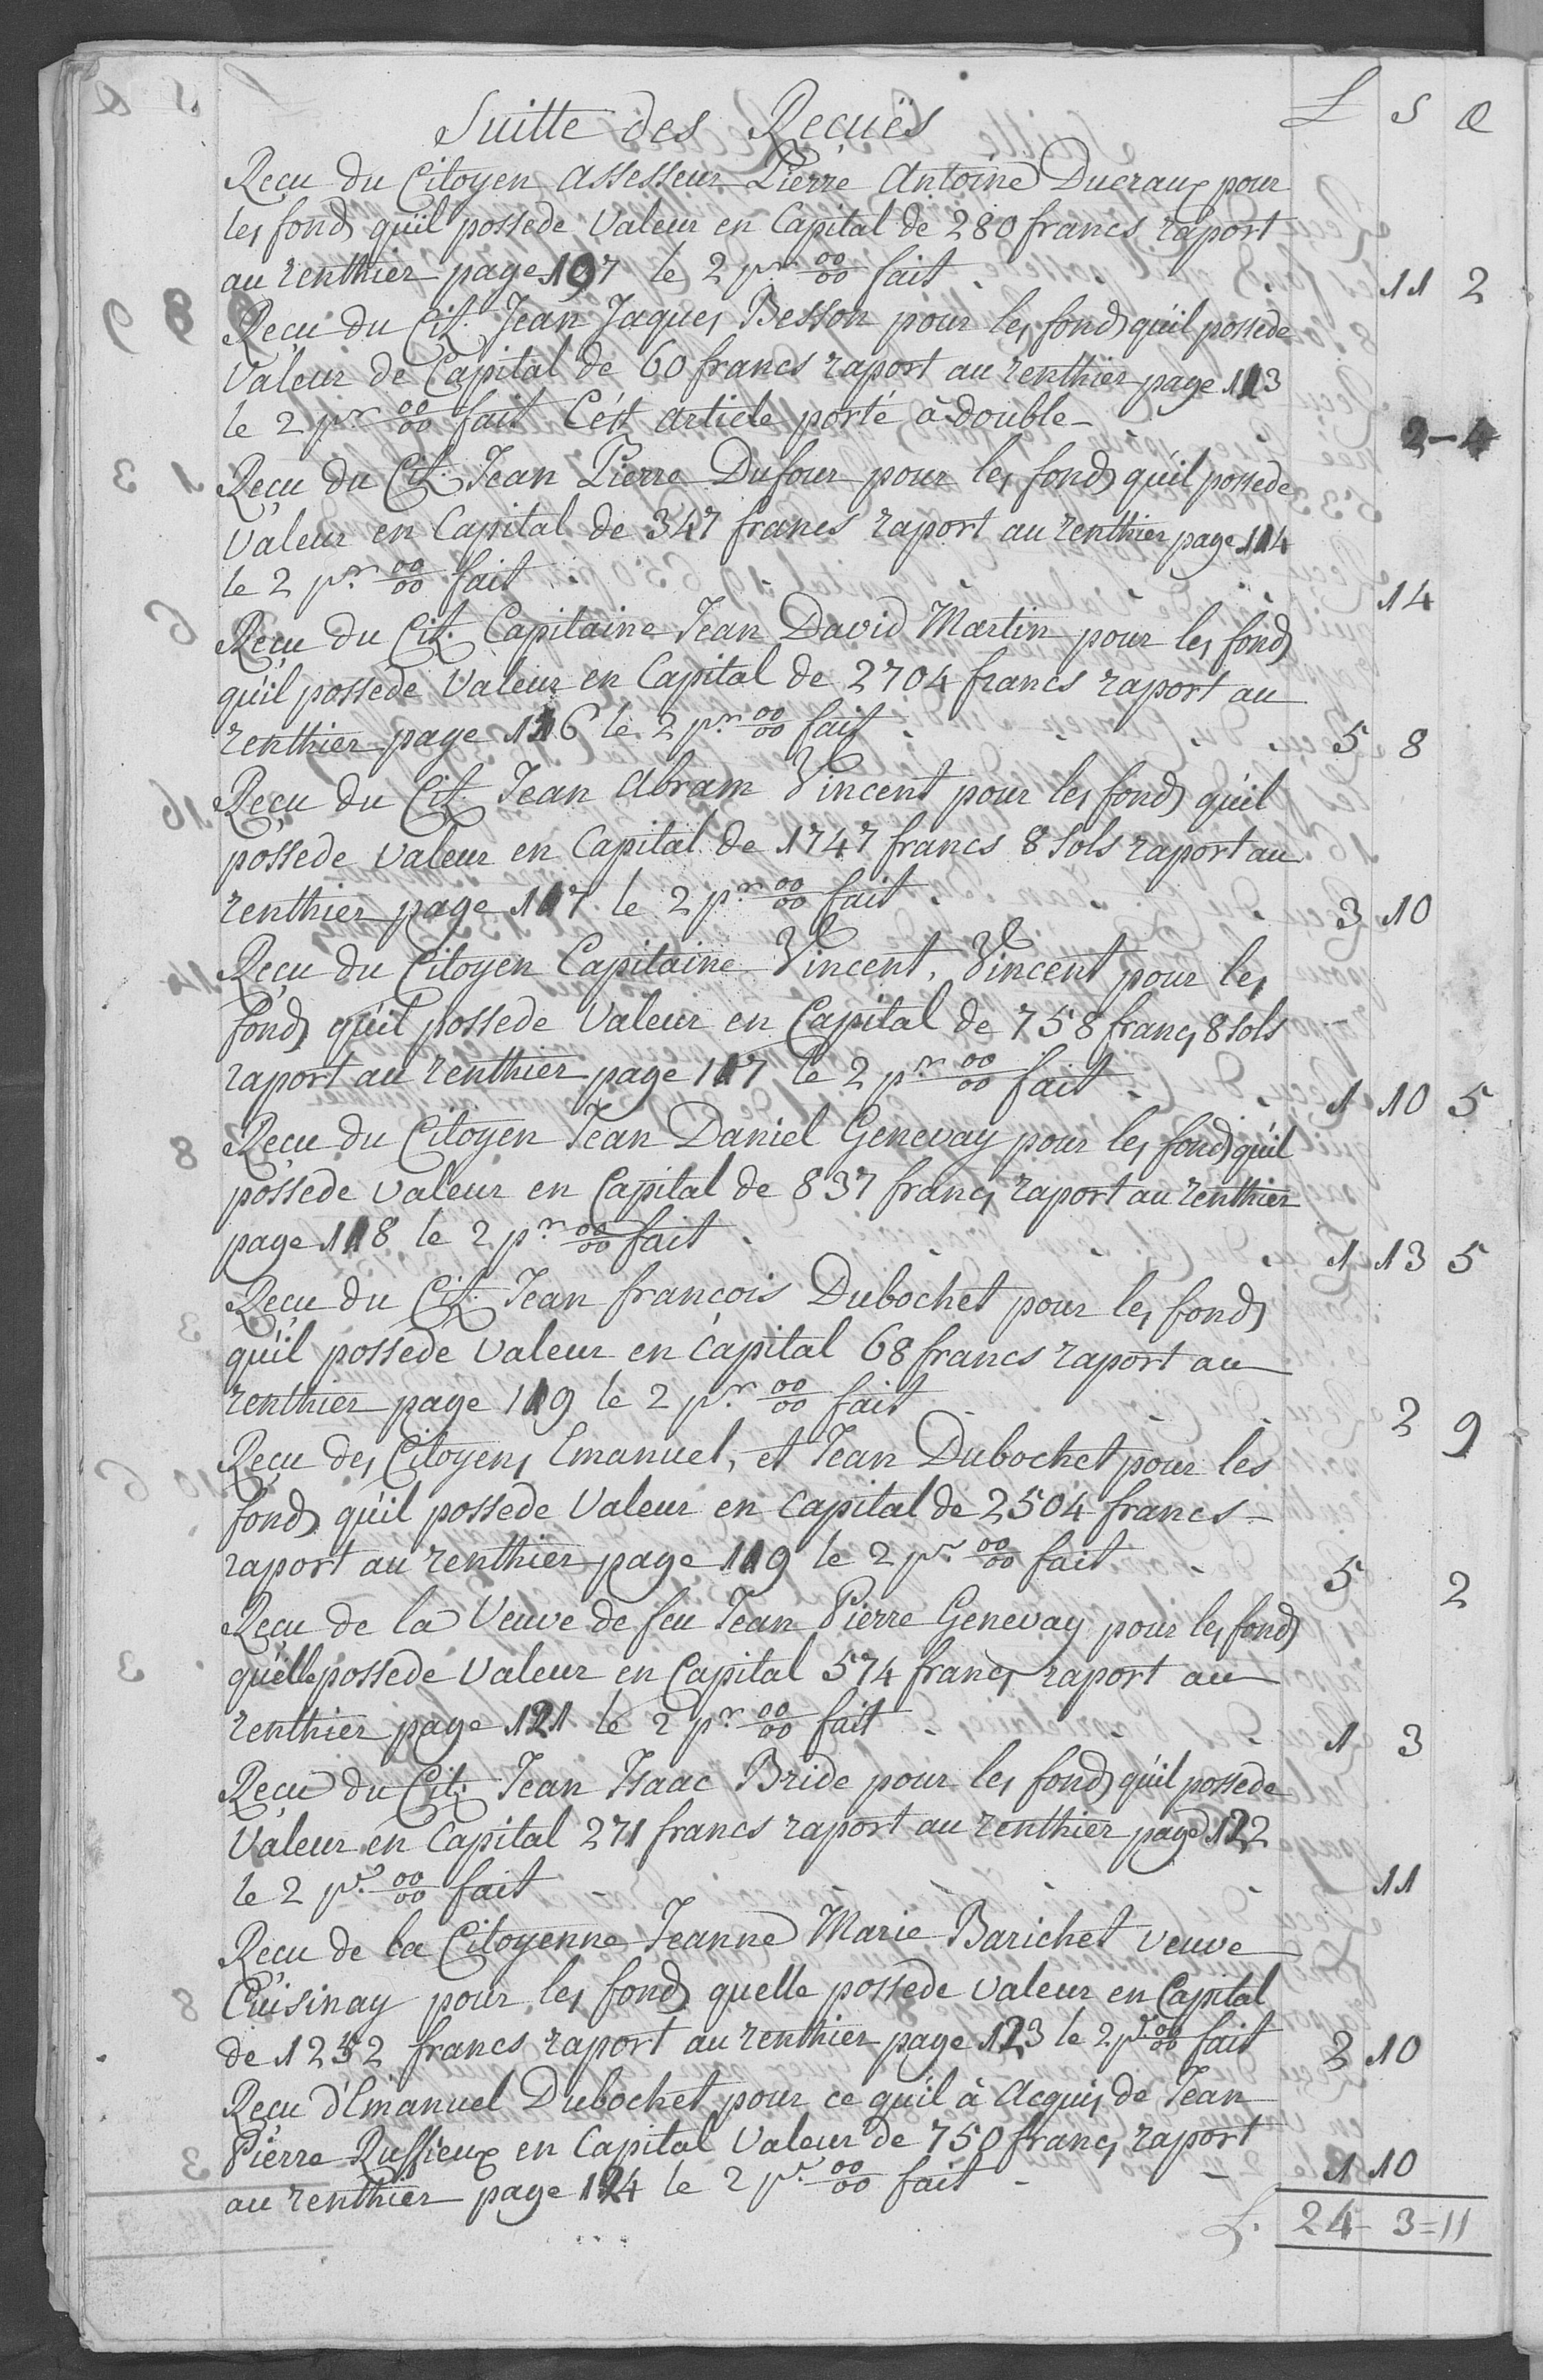 L S d
Suitte des Reçuës
Reçu du Citoyen assesseur Pierre Antoine Ducraux pour
les fonds qu'il possede Valeur en Capital de 280 francs raport
au renthier page 107 le 2 pr 00/00 fait . . 11 2
Reçu du Cit. Jean Jaques Besson pour les fonds qu'il possede
Valeur de Capital de 60 francs raport au renthier page 113
le 2 pr 00/00 fait C'ést article porté à double - 2-4
Reçu du Cit. Jean Pierre Dufour pour les fonds qu'il possede
Valeur en Capital de 347 francs raport au renthier page 114
le 2 pr 00/00 fait . . . . 14
Reçu du Cit. Capitaine Jean David Martin pour les fonds
qu'il possede Valeur en Capital de 2704 francs raport au
renthier page 116 le 2 pr 00/00 fait . . . . 5 8
Reçu du Cit. Jean Abram Vincent pour les fonds qu'il
possede valeur en Capital de 1747 francs 8 sols raport au
renthier page 117 le 2 pr 00/00 fait . . . 3 10
Reçu du Citoyen Capitaine Vincent, Vincent pour les
fonds qu'il possede Valeur en Capital de 758 francs 8 sols
raport au renthier page 117 le 2 pr 00/00 fait . . 1 10 5
Reçu du Citoyen Jean Daniel Genevay pour les fonds qu'il
possede valeur en Capital de 837 francs raport au renthier
page 118 le 2 pr 00/00 fait . . . . 1 13 5
Reçu du Cit. Jean françois Dubochet pour les fonds
qu'il possede valeur en Capital 68 francs raport au
renthier page 119 le 2 pr 00/00 fait . . . 2 9
Reçu des Citoyens Emanuel, et Jean Dubochet pour les
fonds qu'il possede Valeur en Capital de 2504 francs -
raport au renthier page 119 le 2 pr 00/00 fait . 5 2
Reçu de la Veuve de feu Jean Pierre Genevay pour les fonds
qu'elle possede Valeur en Capital 574 francs raport au
renthier page 121 le 2 pr 00/00 fait . . . 1 3
Reçu du Cit: Jean Isaac Bride pour les fonds qu'il possede
Valeur en Capital 271 francs raport au renthier page 122
le 2 pr 00/00 fait - . . . 11
Reçu de la Citoyenne Jeanne Marie Barichet veuve
Cuisinay pour les fonds quelle possede valeur en Capital
de 1252 francs raport au renthier page 123 le 2 pr 00/00 fait 2 10
Reçu d'Emanuel Dubochet pour ce qu'il à Acquis de Jean
Pierre Ruffieux en Capital Valeur de 750 francs raport
au renthier page 124 le 2 pr 00/00 fait - - 1 10
L. 24- 3=11